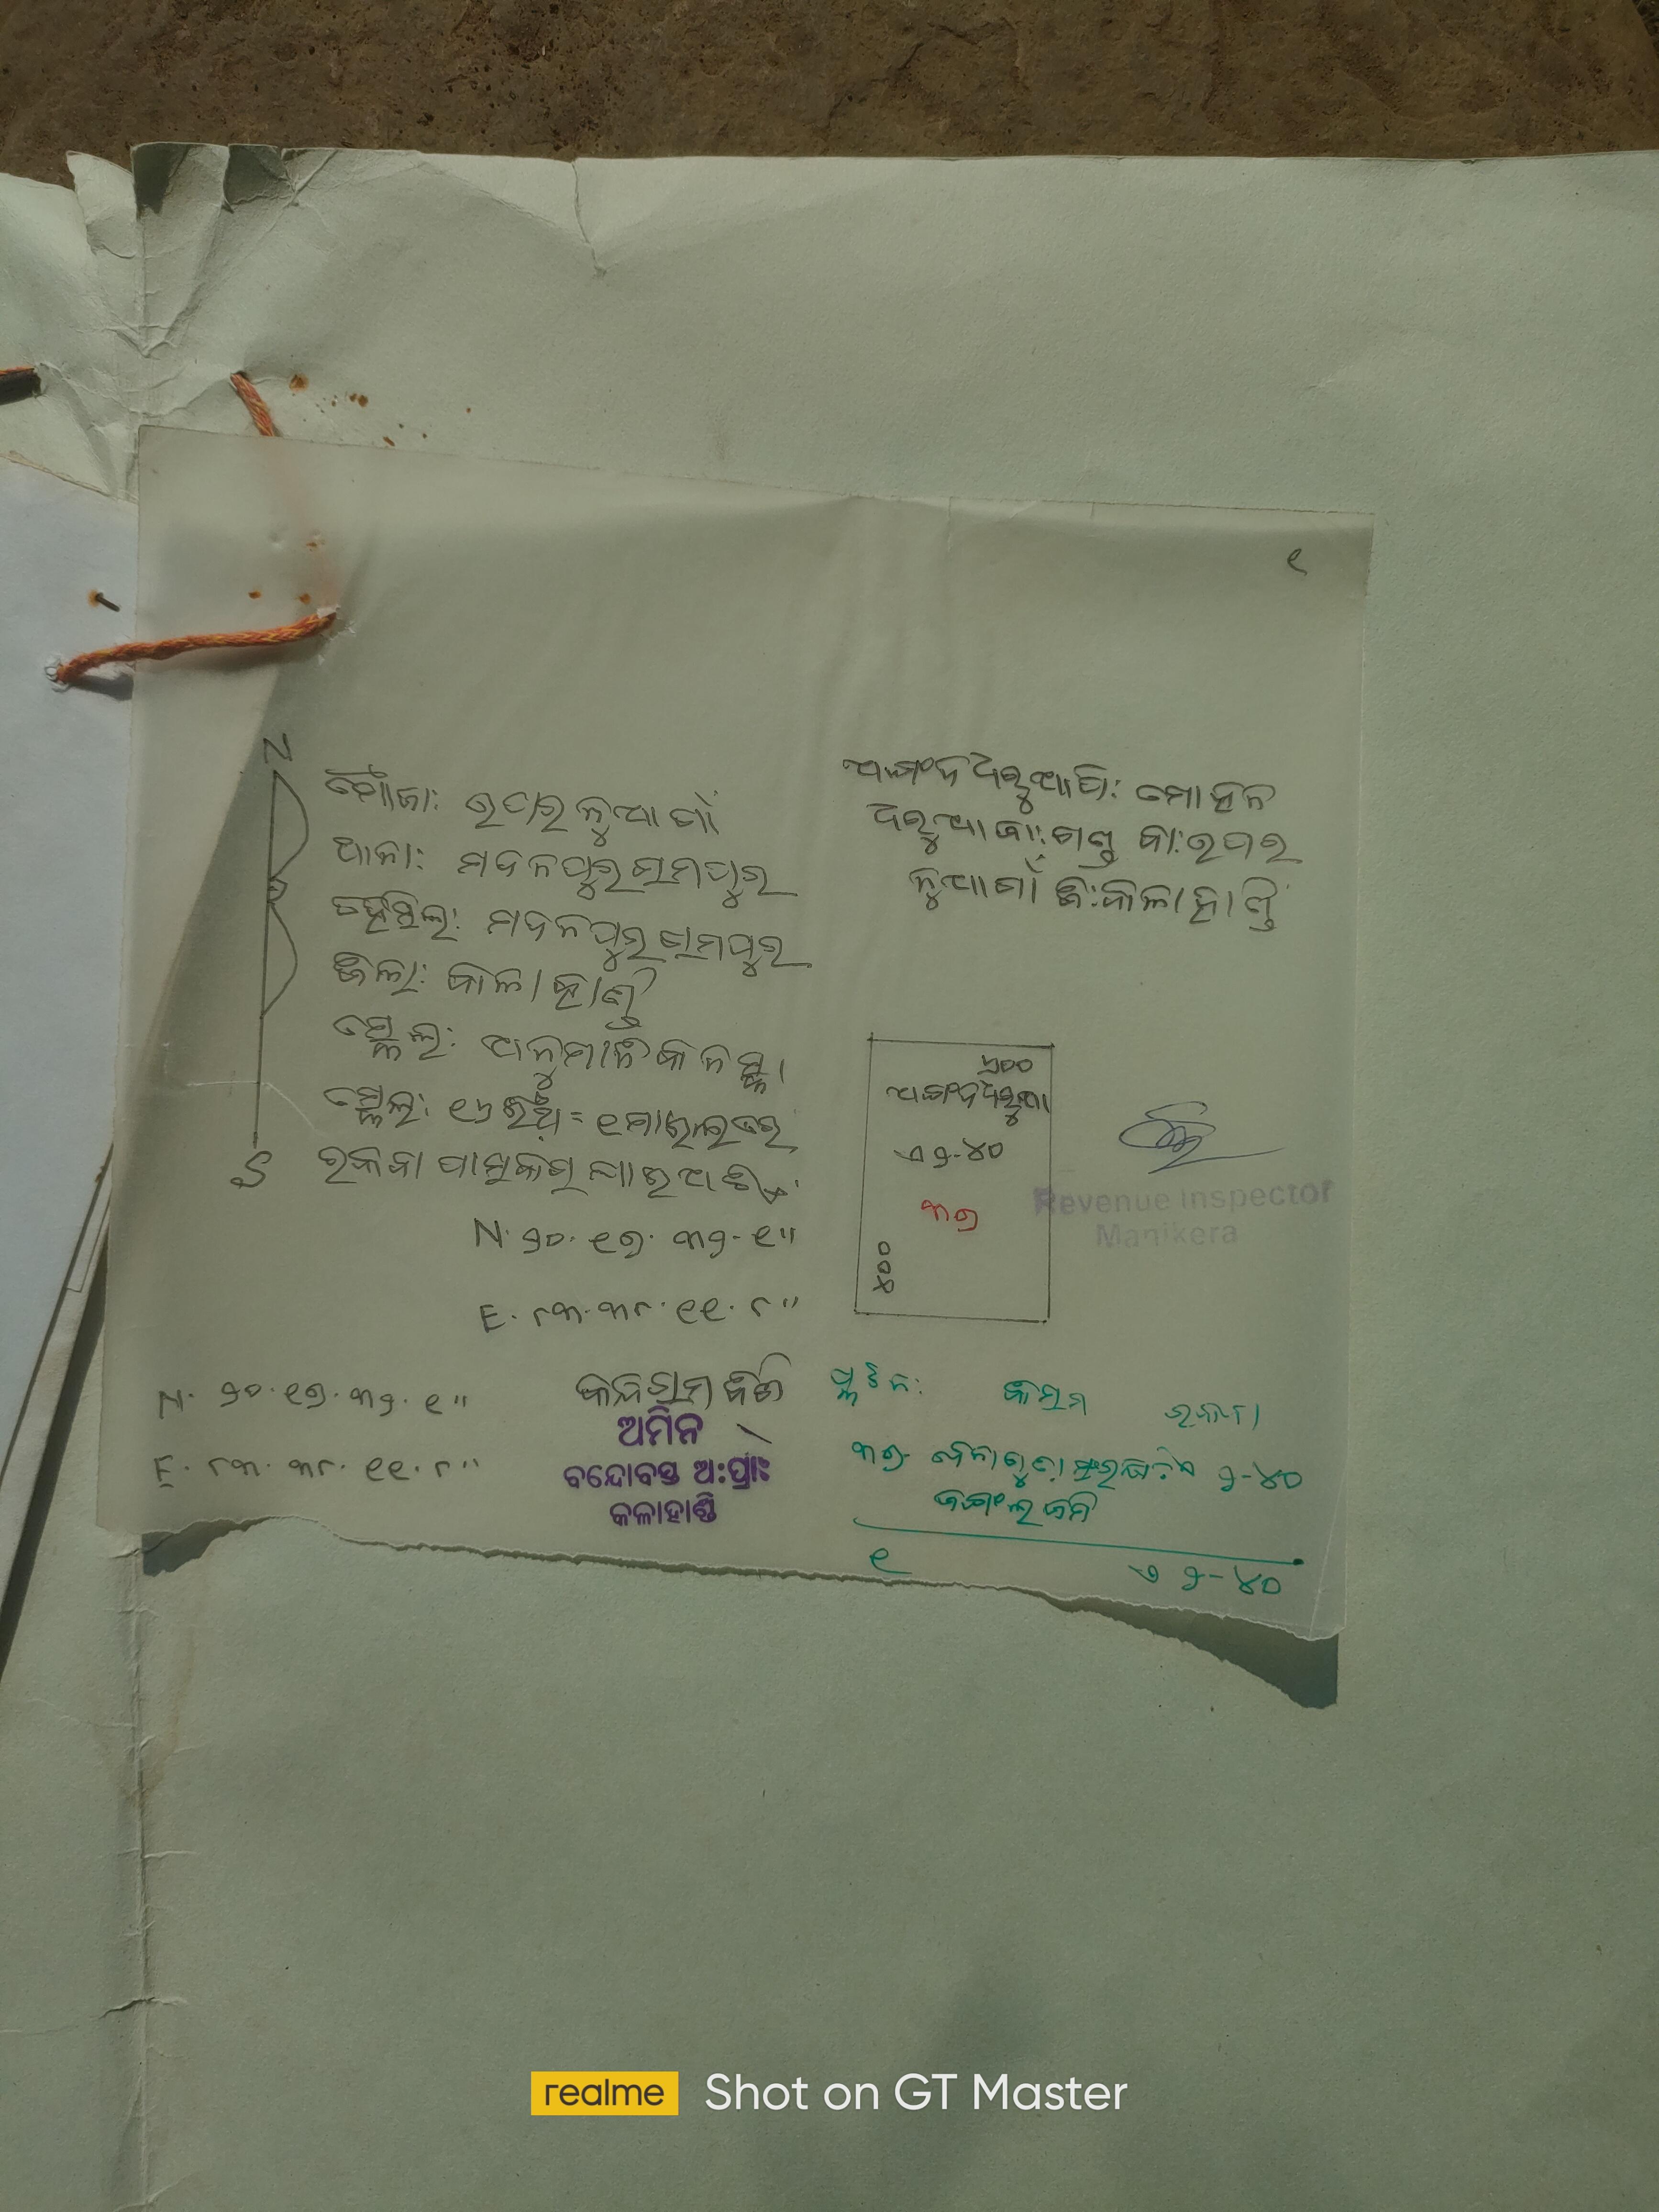 ୧
N
ମୌଜା: ଉପର ନୁଆଗାଁ
ଥାନା: ମଦନପୁର ରାମପୁର
ତହସିଲ: ମଦନପୁର ରାମପୁର
ଜିଲା: କାଳାହାଣ୍ଡି
ସ୍କେଲ: ଆନୁମାନିକ ନକ୍ସା
ସ୍କେଲ: ୧୬ ଇଞ୍ଚ = ୧ ମାଇଲରେ
S
N. ୨୦. ୧୭. ୩୨. ୧"
E. ୮୩. ୩୮. ୧୧. ୮"
ମୋହନ
ଜା: ଗଣ୍ଡ ସା: ଉପର
ନୁଆଗାଁ ଜି: କାଳାହାଣ୍ଡି
୬୦୦
ଏ ୨-୪୦
୩୭
୪୦୦
Revenue Inspector
Manikera
N. ୨୦. ୧୭. ୩୨. ୧"
E. ୮୩. ୩୮. ୧୧. ୮"
ଅମିନ
ବନ୍ଦୋବସ୍ତ ଅ:ପ୍ରା:
କଳାହାଣ୍ଡି
ପ୍ଲଟ ନ: କିସମ ରକବା
୩୭- ୨-୪୦
ଜଙ୍ଗଲ ଜମି
୧ ଏ ୨-୪୦
realme Shot on GT Master